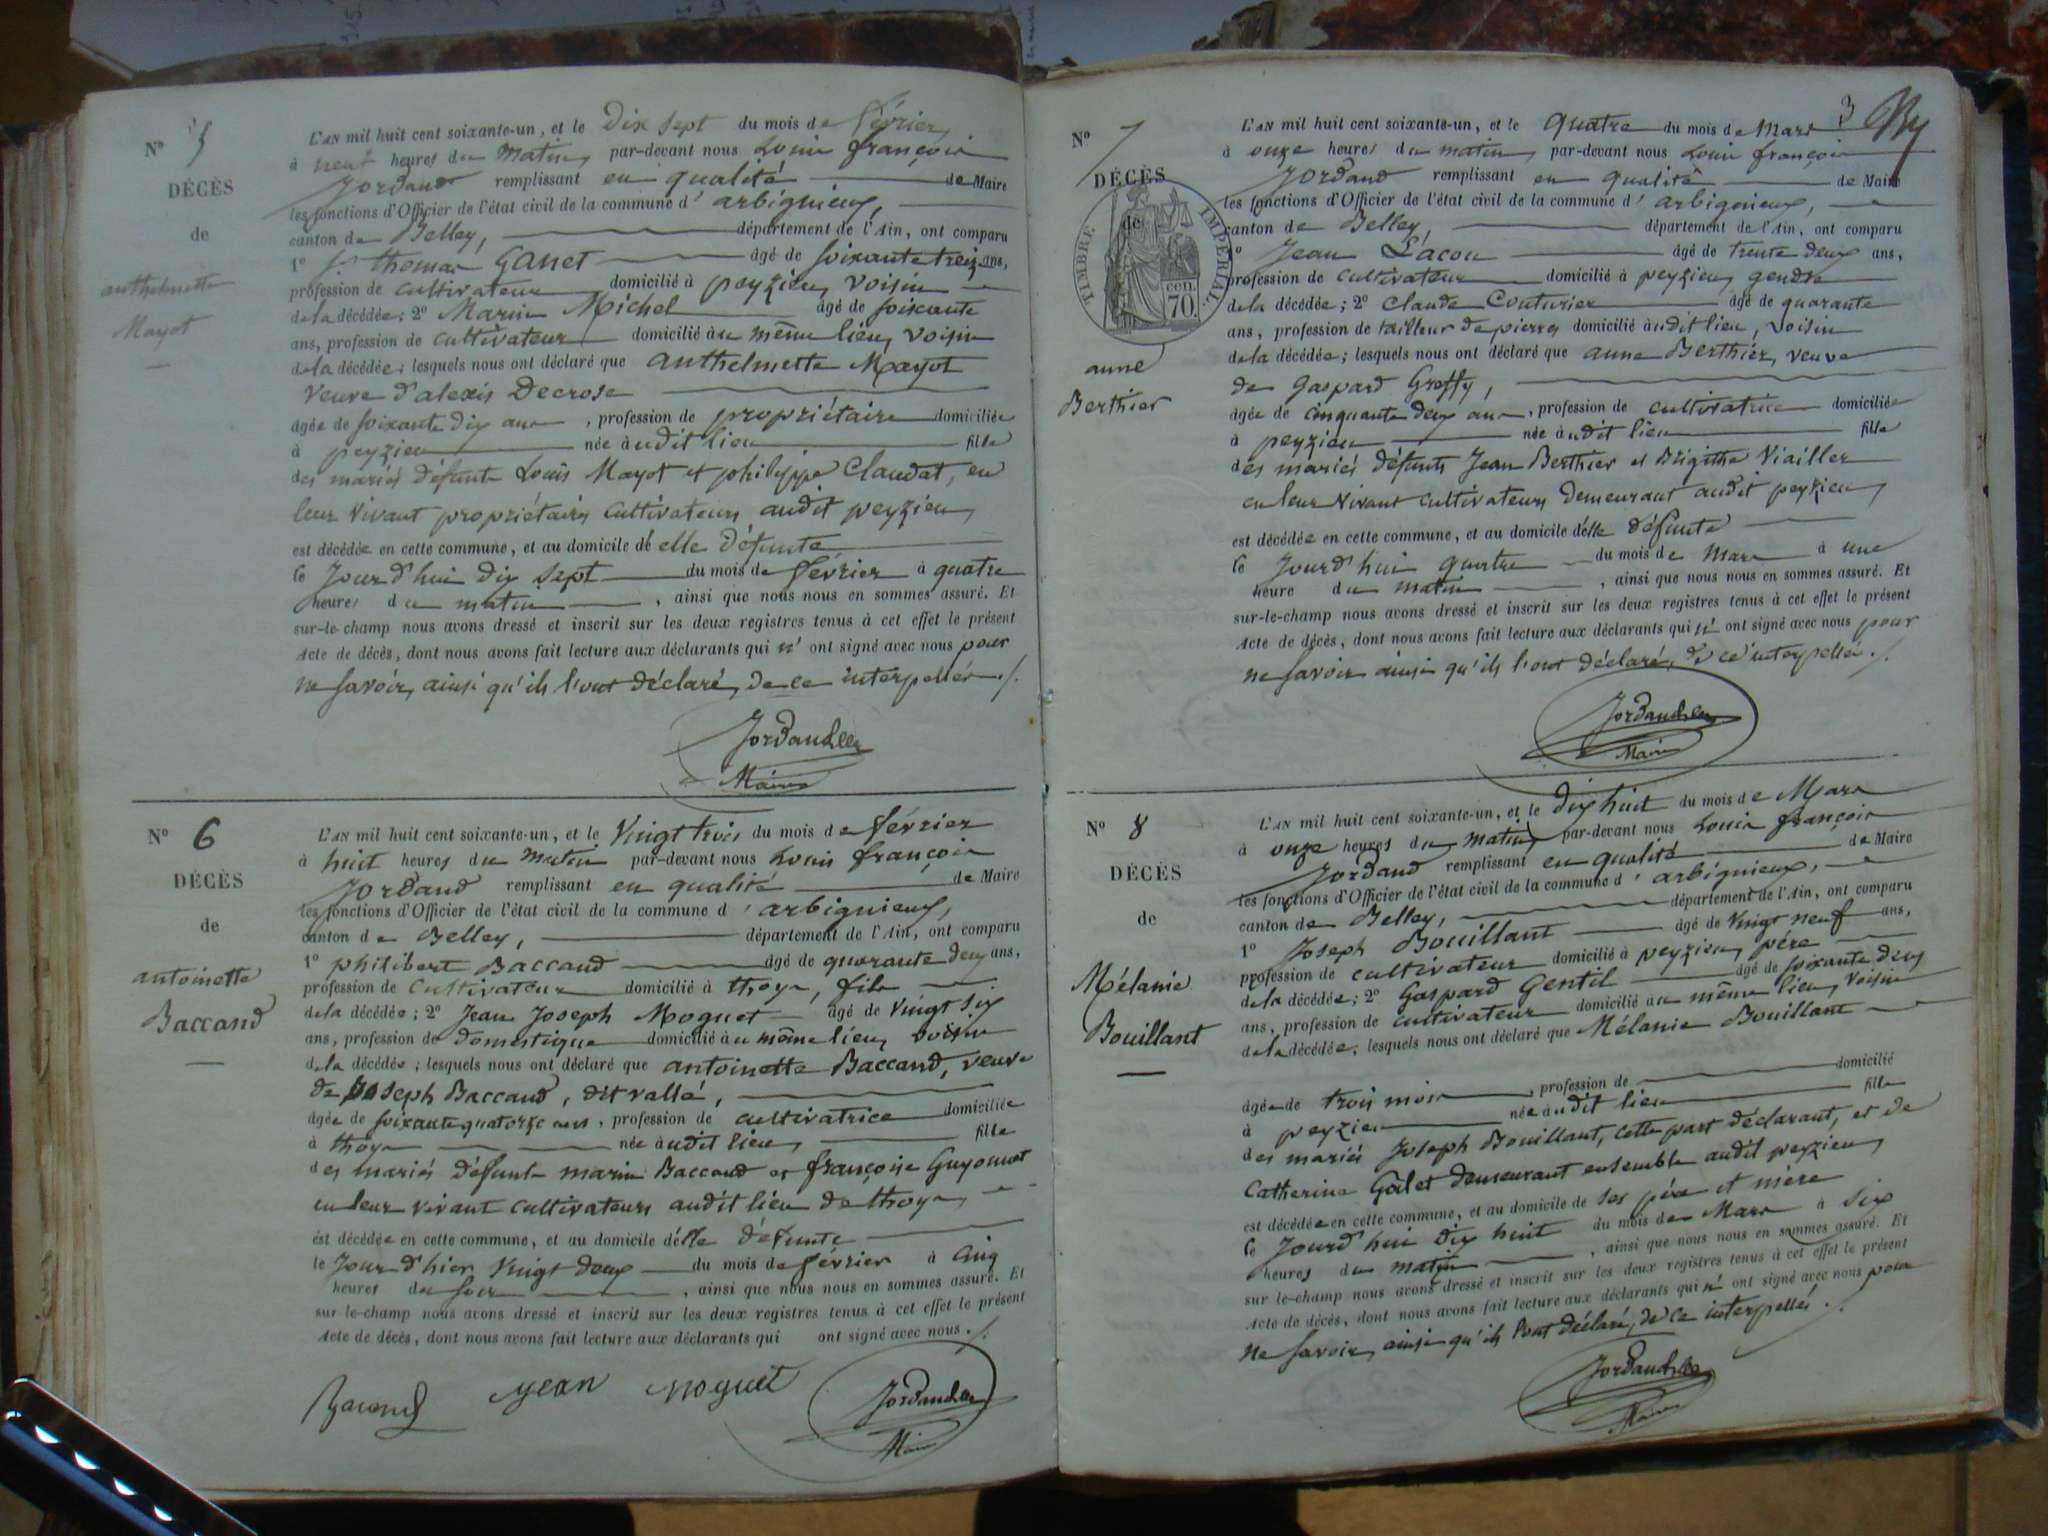 N° 5
DÉCÈS
de
anthelmette
Mayot
L'AN mil huit cent soixante-un, et le Dix sept du mois de février
à neuf heures du matin, par-devant nous Louis françois
Jordand remplissant en qualité de Maire
les fonctions d'Officier de l'état civil de la commune d'arbignieux,
canton de Belley, département de l'Ain, ont comparu
1° thomas Ganet âgé de soixante treize ans,
profession de cultivateur domicilié à peyzieu, voisin
de la décédée; 2° Marin Michel âgé de soixante
ans, profession de cultivateur domicilié au même lieu, voisin
de la décédée; lesquels nous ont déclaré que anthelmette Mayot
veuve d'alexis Decrose
âgée de soixante dix ans, profession de propriétaire domiciliée
à peyzieu née audit lieu fille
des mariés défunts Louis Mayot et philippe Claudat, en
leur vivant propriétaires cultivateurs audit peyzieu,
est décédée en cette commune, et au domicile d'elle défunte
le Jourd'hui dix sept du mois de février à quatre
heures du matin, ainsi que nous nous en sommes assuré. Et
sur-le-champ nous avons dressé et inscrit sur les deux registres tenus à cet effet le présent
Acte de décès, dont nous avons fait lecture aux déclarants qui n'ont signé avec nous pour
ne savoir, ainsi qu'ils l'ont déclaré, de ce interpellés ./.
Maire
N° 6
DÉCÈS
de
antoinette
Baccand
L'AN mil huit cent soixante-un, et le Vingt trois du mois de février
à huit heures du matin par-devant nous Louis françois
Jordand remplissant en qualité de Maire
les fonctions d'Officier de l'état civil de la commune d'arbignieux,
canton de Belley, département de l'Ain, ont comparu
1° philibert Baccand âgé de quarante deux ans,
profession de Cultivateur domicilié à thoys, fils
de la décédée; 2° Jean Joseph Moguet âgé de vingt six
ans, profession de domestique domicilié au même lieu, voisin
de la décédée; lesquels nous ont déclaré que antoinette Baccand, veuve
de Joseph Baccand, dit vallé,
âgée de soixante quatorze ans, profession de cultivatrice domiciliée
à thoys née audit lieu, fille
des mariés défunts marin Baccand et françoise Guyonnet
en leur vivant cultivateurs audit lieu de thoys,
est décédée en cette commune, et au domicile d'elle défunte
le Jour d'hier vingt deux du mois de février à cinq
heures du soir, ainsi que nous nous en sommes assuré. Et
sur-le-champ nous avons dressé et inscrit sur les deux registres tenus à cet effet le présent
Acte de décès, dont nous avons fait lecture aux déclarants qui ont signé avec nous ./.
Bacand jean moguet
Maire
3
N° 7
DÉCÈS
de
TIMBRE IMPÉRIAL
cen.
70.
anne
Berthier
L'AN mil huit cent soixante-un, et le quatre du mois de Mars
à onze heures du matin, par-devant nous Louis françois
Jordand remplissant en qualité de Maire
les fonctions d'Officier de l'état civil de la commune d'arbignieux,
canton de Belley, département de l'Ain, ont comparu
1° Jean Lacou âgé de trente deux ans,
profession de cultivateur domicilié à peyzieu, gendre
de la décédée; 2° Claude Couturier âgé de quarante
ans, profession de tailleur de pierres domicilié audit lieu, voisin
de la décédée; lesquels nous ont déclaré que anne Berthier, veuve
de Gaspard Greffy,
âgée de cinquante deux ans, profession de cultivatrice domiciliée
à peyzieu née audit lieu fille
des mariés défunts Jean Berthier et Brigitte Viailler
en leur vivant cultivateurs demeurant audit peyzieu,
est décédée en cette commune, et au domicile d'elle défunte
le Jourd'hui quatre du mois de mars à une
heure du matin, ainsi que nous nous en sommes assuré. Et
sur-le-champ nous avons dressé et inscrit sur les deux registres tenus à cet effet le présent
Acte de décès, dont nous avons fait lecture aux déclarants qui n'ont signé avec nous pour
ne savoir ainsi qu'ils l'ont déclaré, de ce interpellés ./.
Maire
N° 8
DÉCÈS
de
Mélanie
Bouillant
L'AN mil huit cent soixante-un, et le dix huit du mois de Mars
à onze heures du matin, par-devant nous Louis françois
Jordand remplissant en qualité de Maire
les fonctions d'Officier de l'état civil de la commune d'arbignieux,
canton de Belley, département de l'Ain, ont comparu
1° Joseph Bouillant âgé de vingt neuf ans,
profession de cultivateur domicilié à peyzieu, père
de la décédée; 2° Gaspard Gentil âgé de soixante deux
ans, profession de cultivateur domicilié au même lieu, voisin
de la décédée; lesquels nous ont déclaré que Mélanie Bouillant
âgée de trois mois, profession de domicilié
à peyzieu née audit lieu fille
des mariés Joseph Bouillant, cette part déclarant, et de
Catherine Galet demeurant ensemble audit peyzieu,
est décédée en cette commune, et au domicile de ses père et mère
le Jourd'hui dix huit du mois de Mars à six
heures du matin, ainsi que nous nous en sommes assuré. Et
sur-le-champ nous avons dressé et inscrit sur les deux registres tenus à cet effet le présent
Acte de décès, dont nous avons fait lecture aux déclarants qui n'ont signé avec nous pour
ne savoir, ainsi qu'ils l'ont déclaré, de ce interpellés ./.
Maire